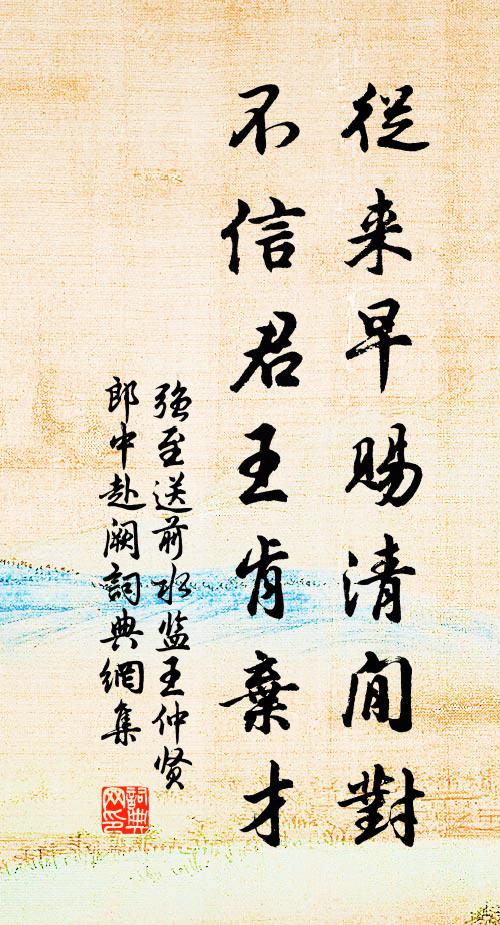 從来早賜清閒對
不信君王肯棄才
強至送前水监王仲贤
郎中赴阙詞典網集
詞典网印